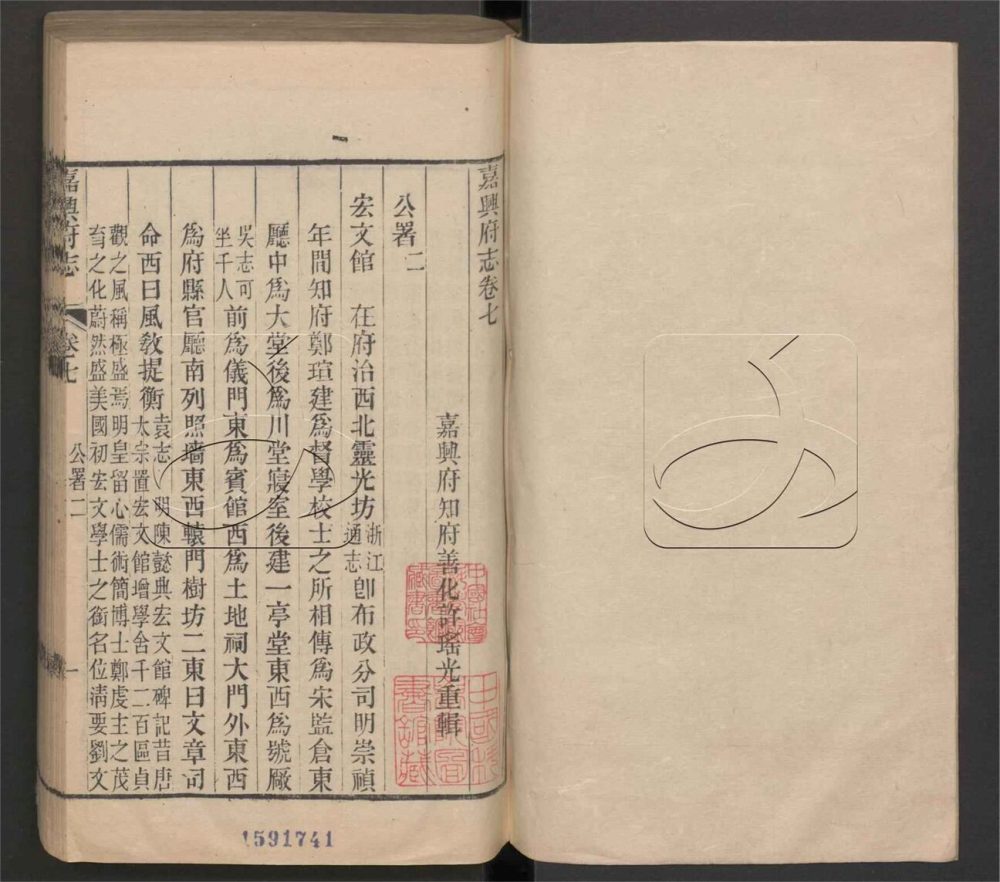 嘉興府志卷七
嘉興府知府善化許瑤光重輯
公署二
宏文館　在府治西北靈光坊浙江通志卽布政分司明崇禎
年間知府鄭瑄建爲督學校士之所相傳爲宋監倉東
廳中爲大堂後爲川堂寢室後建一亭堂東西爲號厰
吳志可坐千人前爲儀門東爲賓館西爲土地祠大門外東西
爲府縣官廳南列照墻東西轅門樹坊二東曰文章司
命西曰風敎提衡袁志　明陳懿典宏文館碑記昔唐
太宗置宏文館增學舍千二百區貞
觀之風稱極盛焉明皇留心儒術簡博士鄭虔主之茂
育之化蔚然盛美國初宏文學士之銜名位淸要劉文
嘉興府志
卷七
公署二
一
1591741